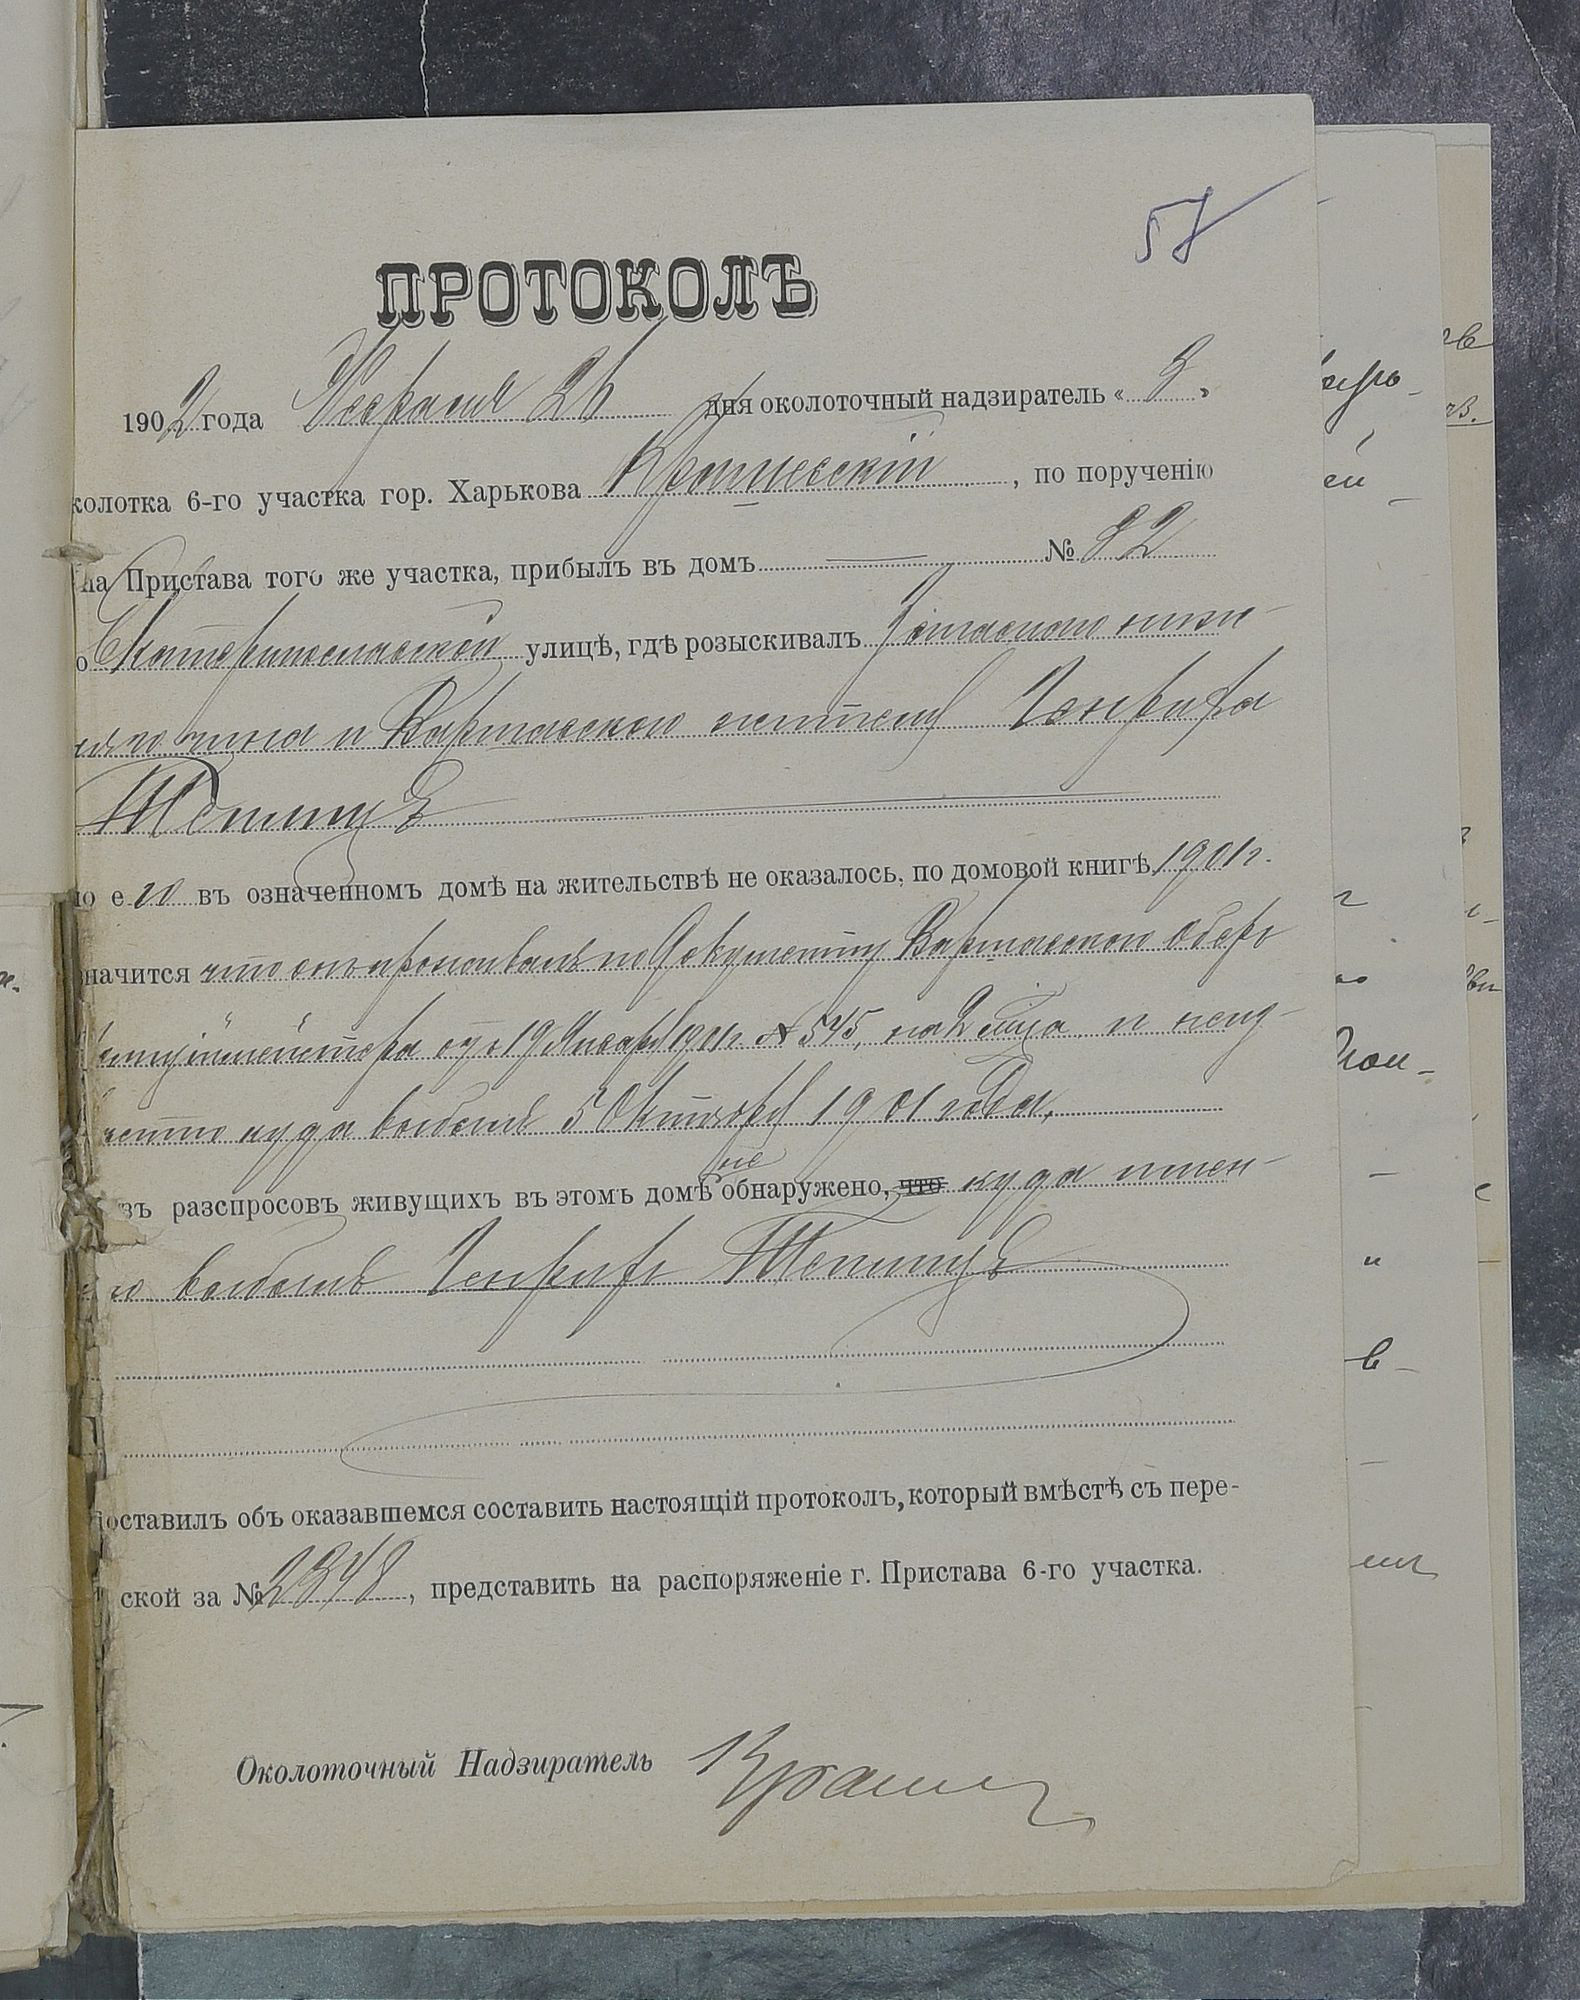 58
ПРОТОКОЛЪ
1902 года Февраля 26 дня околоточный надзиратель « 3 »
колотка 6-го участка гор. Харькова Крашевскій, по порученію
на Пристава того же участка, прибылъ въ домъ № 82
о Екатеринославской улицѣ, где розыскивалъ Запаснаго ниж-
няго чина и Варшавскаго жителя Генриха
но его въ означенномъ домѣ на жительствѣ не оказалось, по домовой книгѣ 1901 г.
значится что онъ проживалъ по документу Варшавскаго Оберъ
Полиціймейстера отъ 19 Января 1901 г № 545, на и неиз-
вестно куда выбылъ 5 Октября 1901 года,
изъ разспросовъ живущихъ въ этомъ домѣ не обнаружено, что куда имен-
но выбылъ Генрихъ
поставилъ объ оказавшемся составить настоящій протоколъ, который вмѣстѣ съ пере-
ской за № 2348, представить на распоряженіе г. Пристава 6-го участка.
Околоточный Надзиратель